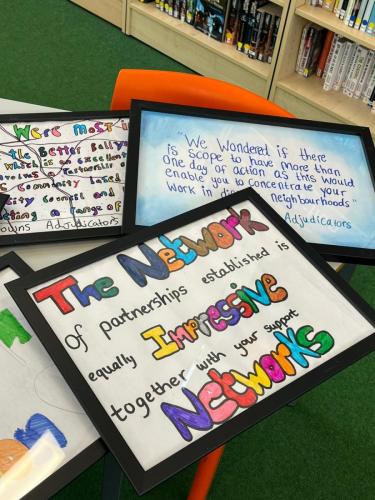 Were most i
the Better Bally
which is an excellent
Community based
"We Wondered if there
is scope to have more than
one day of action as this would
enable you to concentrate your
work in neighbourhoods"
Adjudicators
owns Adjudicators
The Network
of partnerships established is
equally Impressive
together with your support
Networks